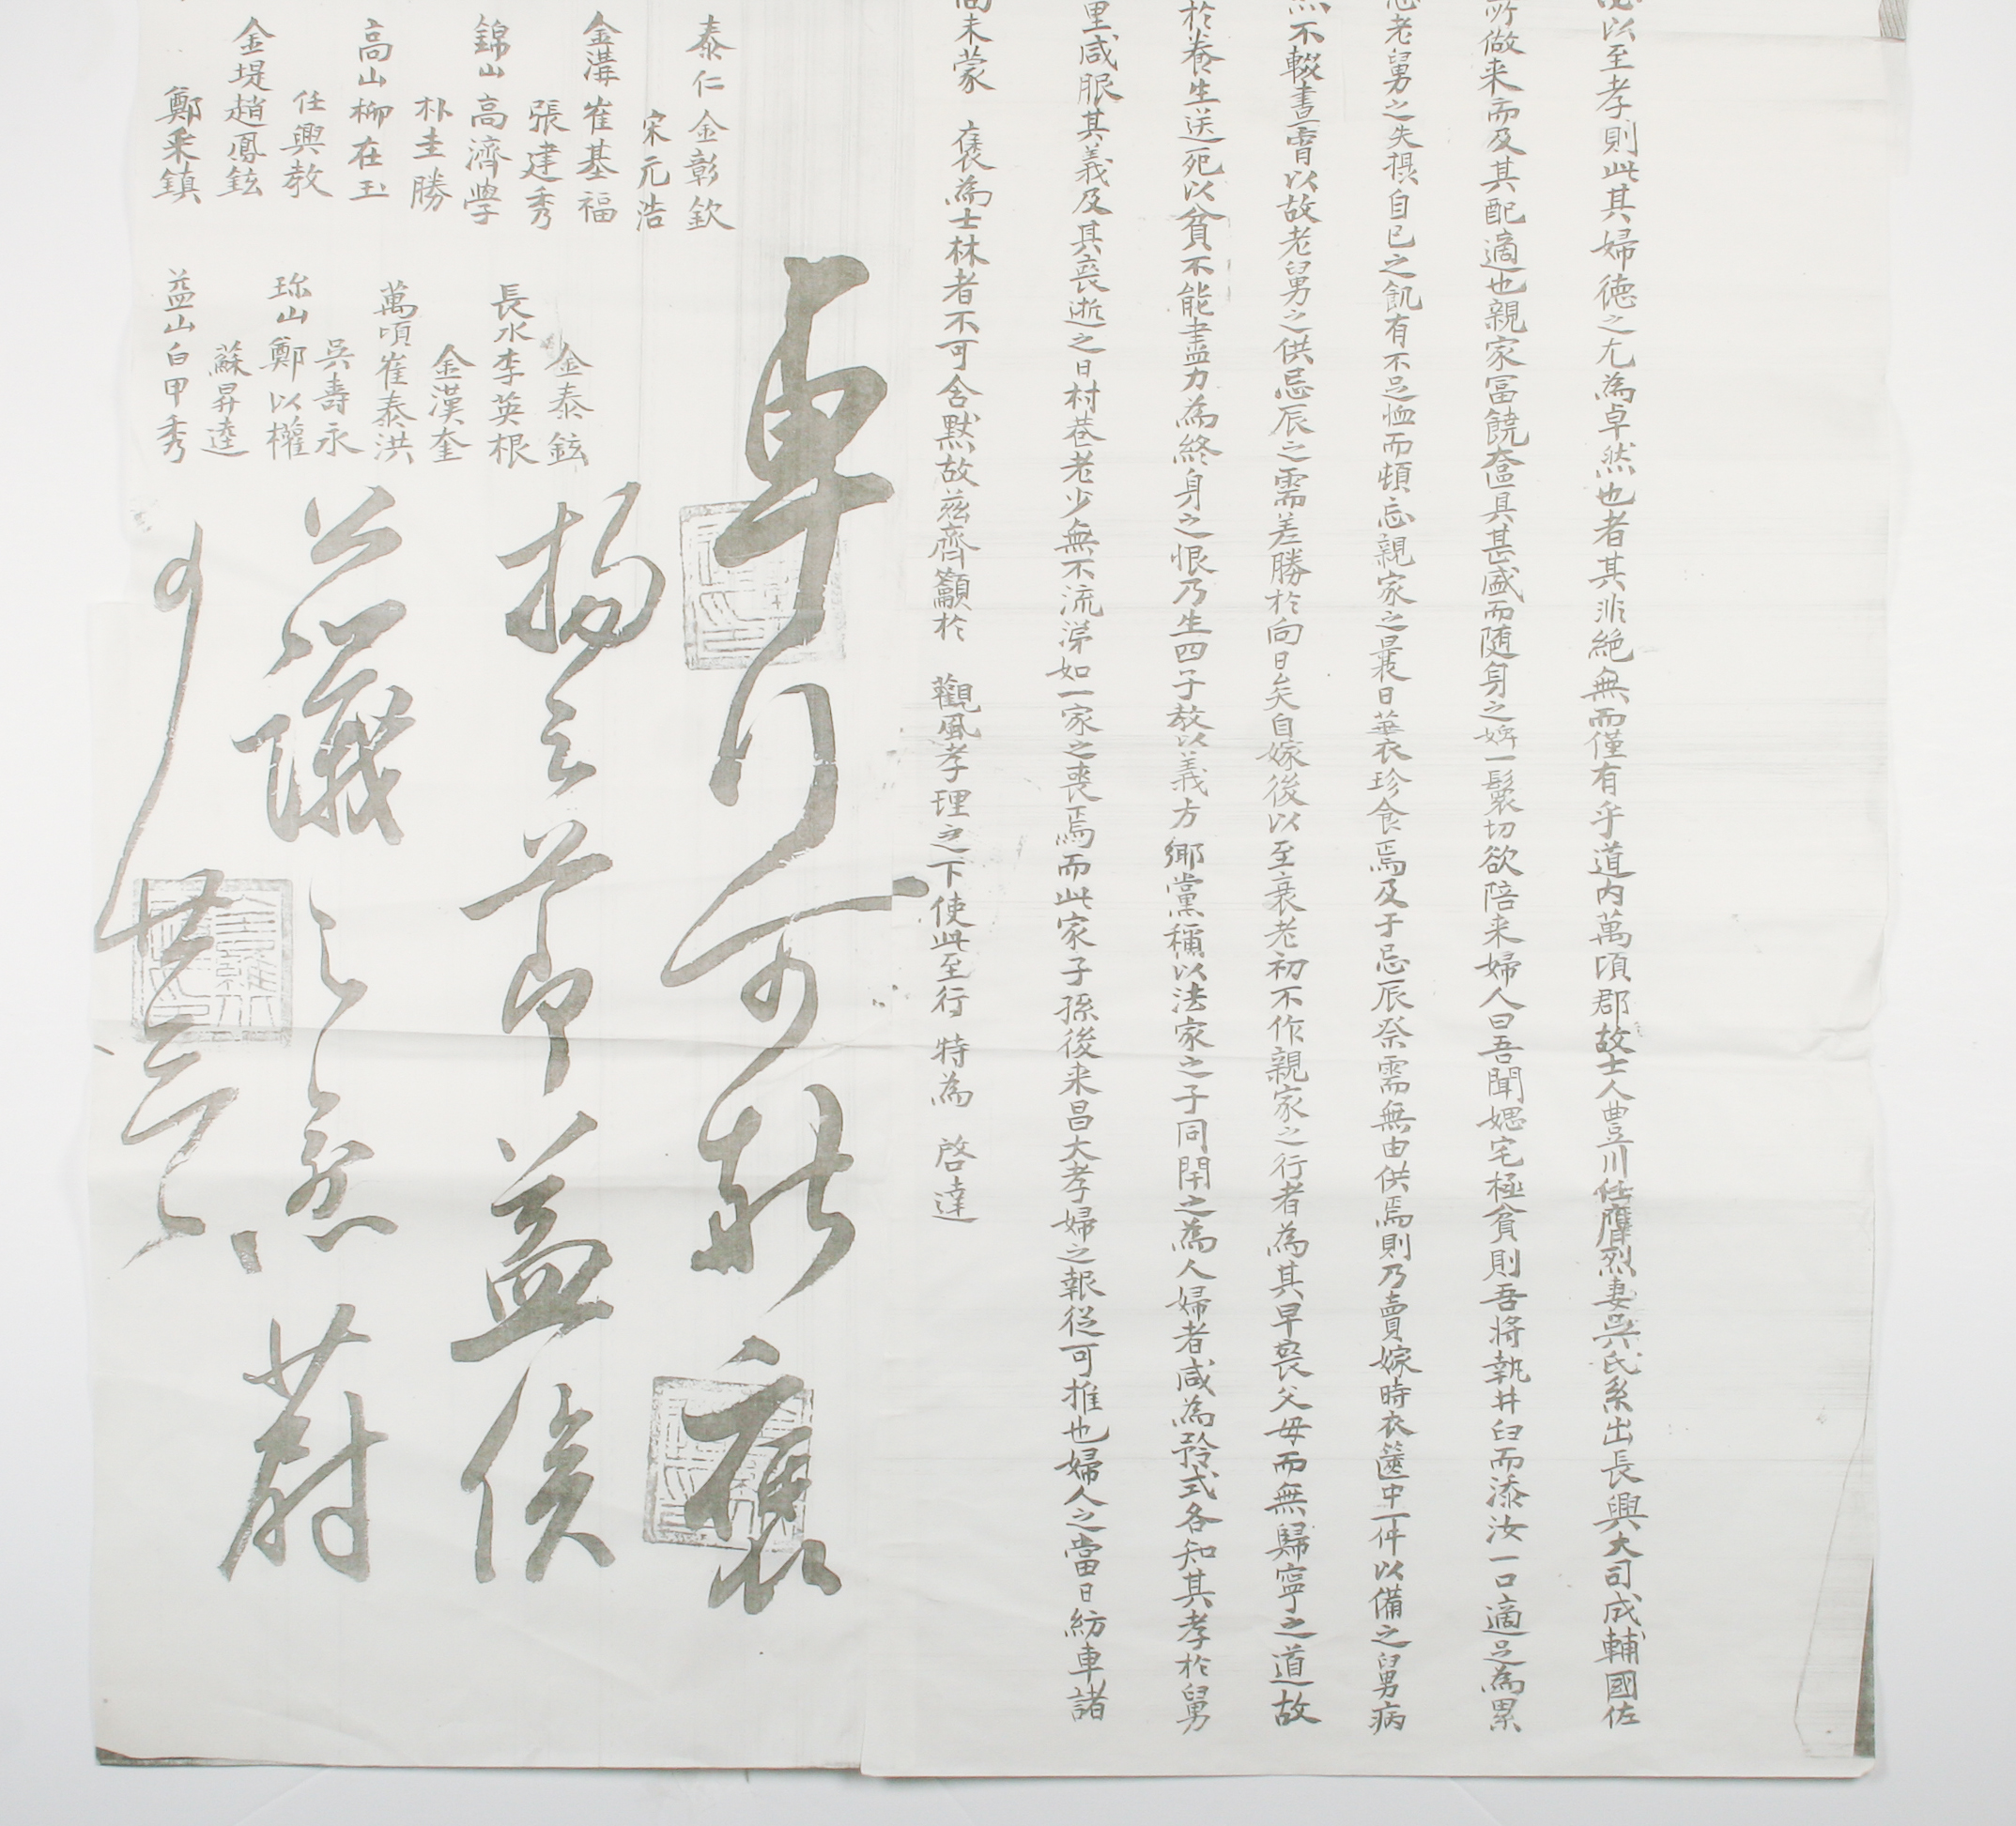 以至孝則此其婦德之尤為卓然也者其非絶無而僅有乎道内萬頃郡故士人豊川任膺烈妻吳氏系出長興大司成輔國佐
所做来而及其配適也親家冨饒奩具甚盛而随身之婢一鬟切欲陪来婦人曰吾聞媤宅極貧則吾將執井臼而添汝一口適足為累
老舅之失摂自己之飢有不足恤而頓忘親家之曩日華衣珍食焉及于忌辰祭需無由供焉則乃賣嫁時衣篋中一件以備之舅病
不輟晝宵以故老舅之供忌辰之需差勝於向日矣自嫁後以至衰老初不作親家之行者為其早喪父母而無歸寧之道故
於養生送死以貧不能盡力為終身之恨乃生四子教以義方鄉黨稱以法家之子同閈之為人婦者咸為矜式各知其孝於舅
里咸服其義及其喪逝之日村巷老少無不流涕如一家之喪焉而此家子孫後来昌大孝婦之報從可推也婦人之當日紡車諸
尚未蒙 褒為士林者不可含黙故茲齊籲於 觀風孝理之下使此至行 特為 啓達
泰仁金彰欽
宋元浩
金溝崔基福
張建秀
錦山高濟學
朴圭勝
高山柳在玉
任興教
金堤趙鳳鉉
鄭釆鎮
金泰鉉
長水李英根
金漢奎
萬頃崔泰洪
吳壽永
珎山鄭以權
蘇昇逵
益山白甲秀
卓行可敬褒
揚之節益俟
公議之齊蔚
向事